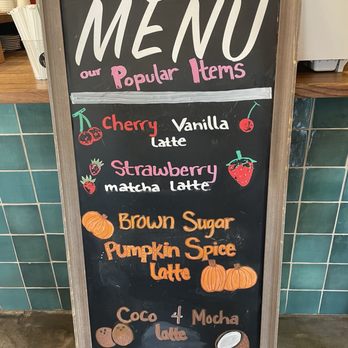 MENU
our Popular Items
Cherry Vanilla
latte
Strawberry
matcha Latte
Brown Sugar
Pumpkin Spice
latte
Coco & Mocha
latte